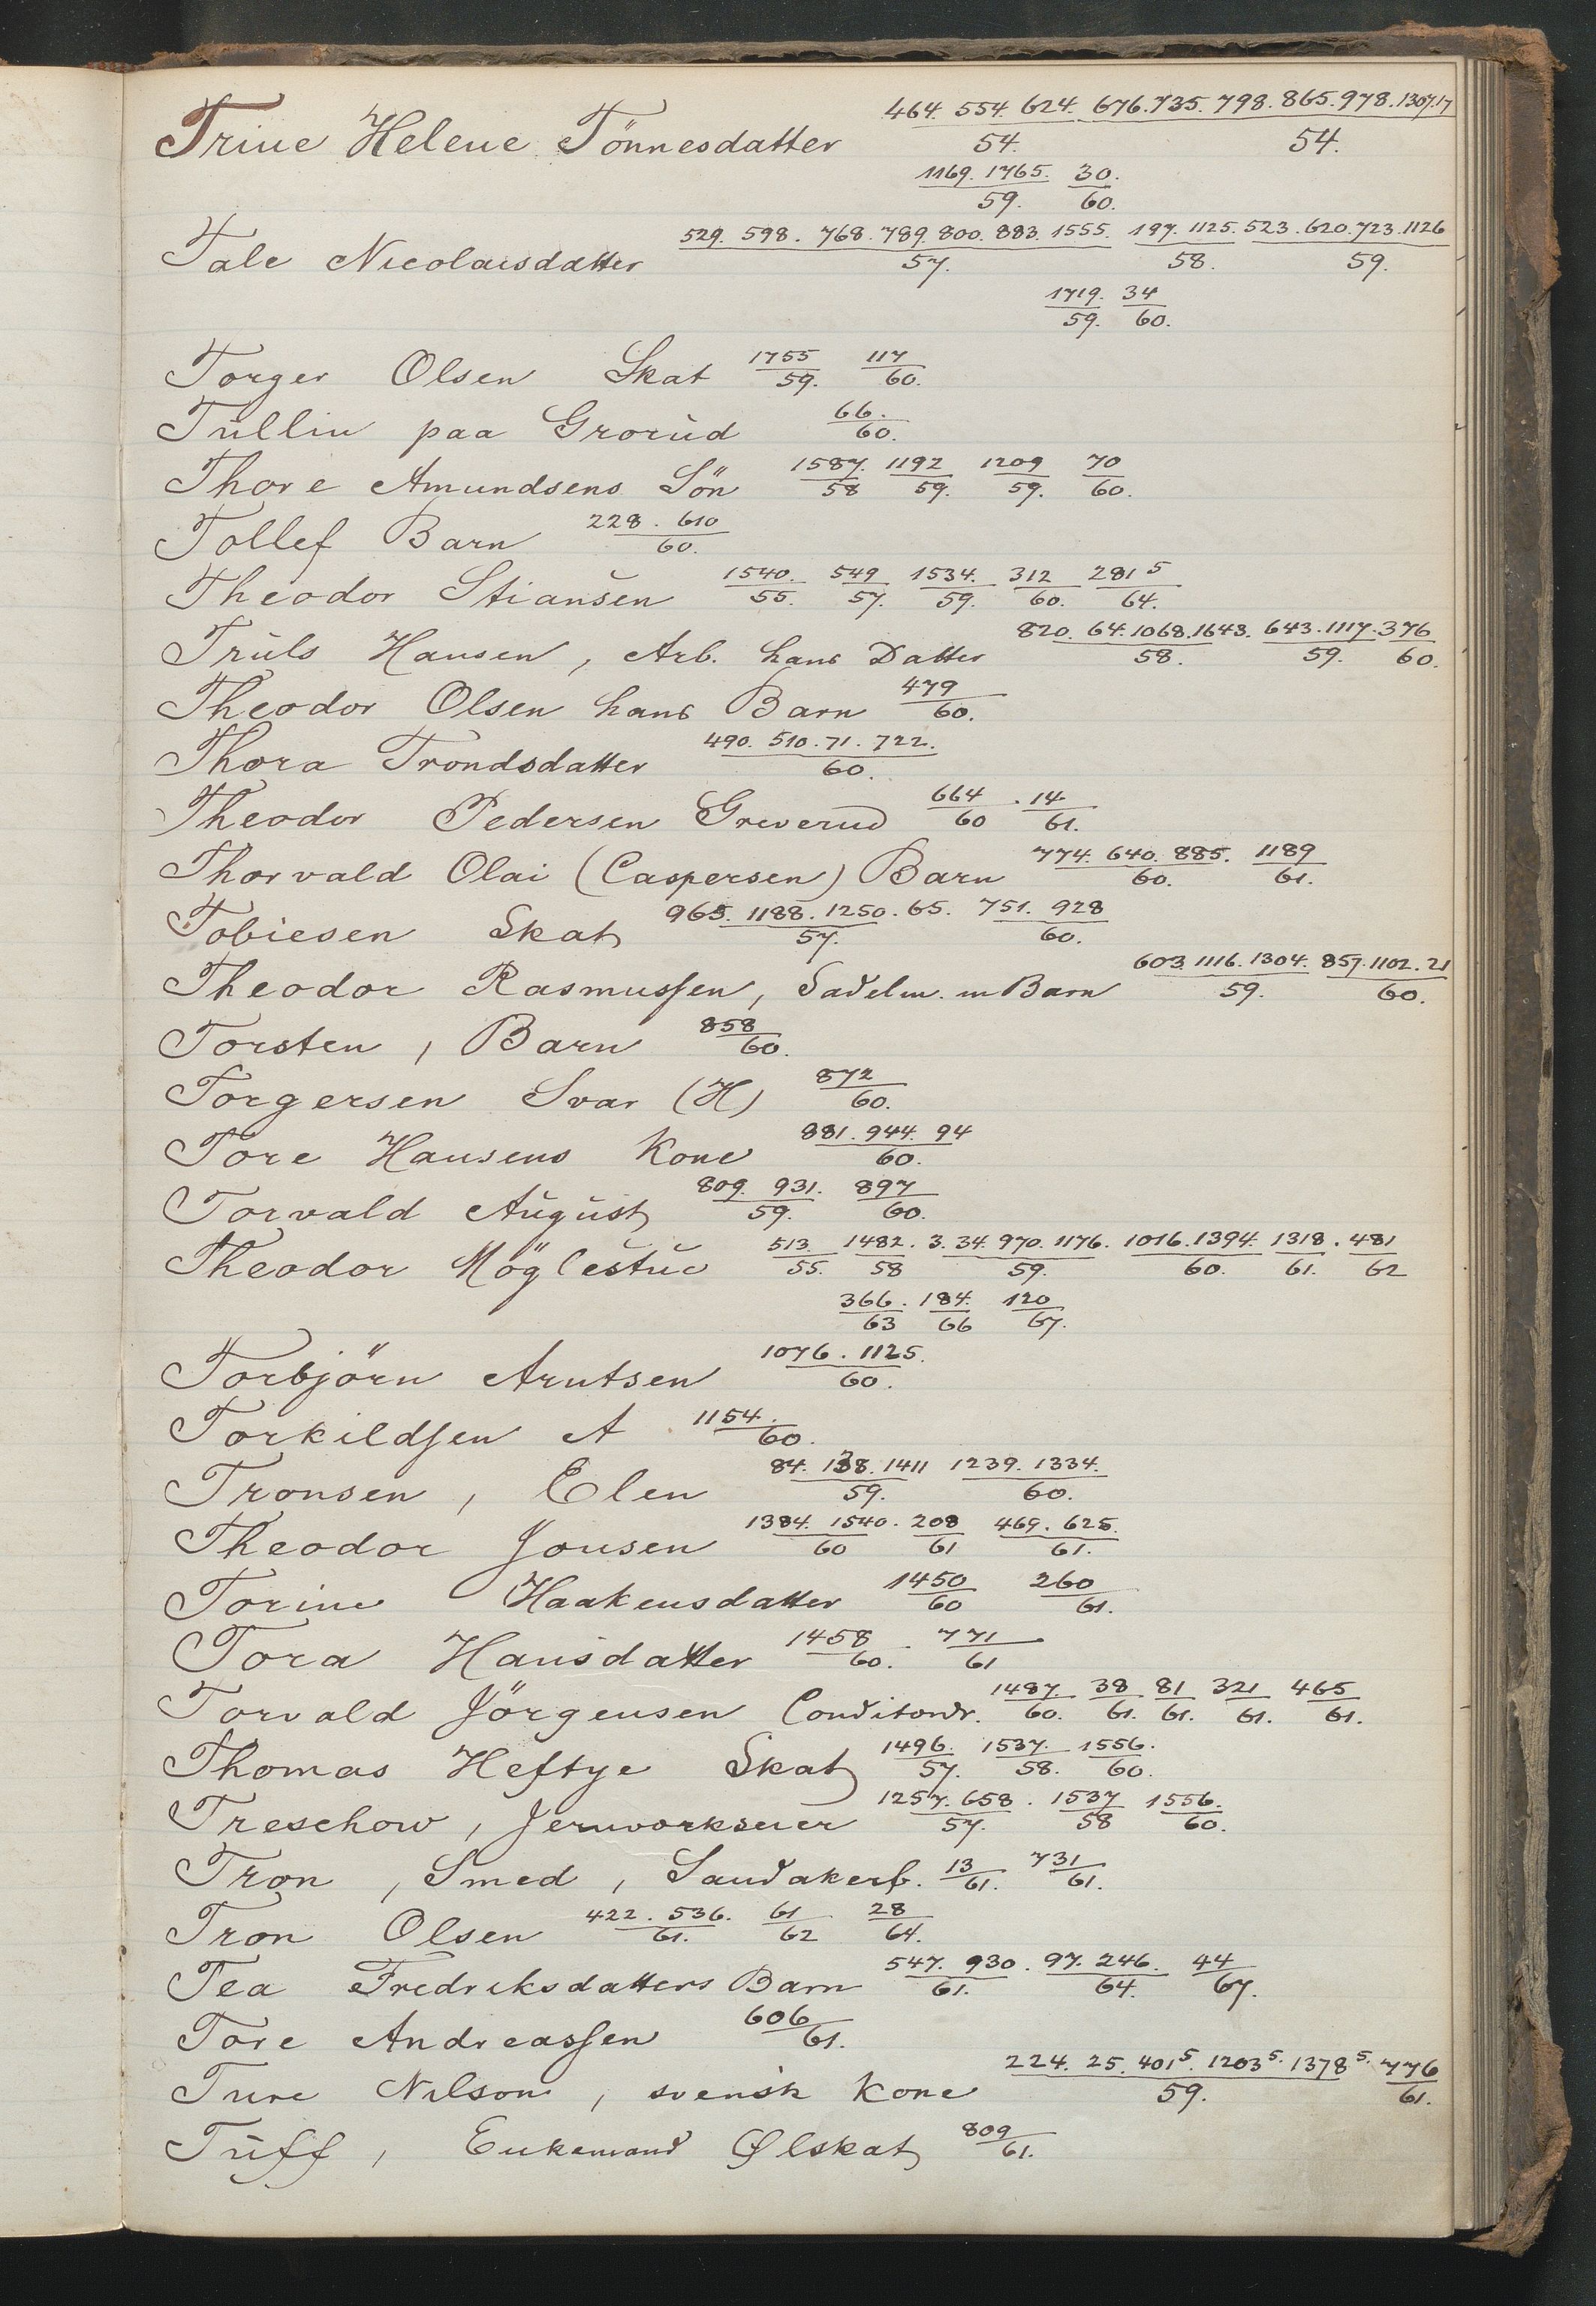 464. 554. 624. 676. 735. 798. 865. 978. 1307. 17
Trine Helene Tönnesdatter 54. 54.
1169. 1765. 30.
59. 60.
529. 598. 768. 789. 800. 883. 1555. 197. 1125. 523. 620. 723. 1126
Tale Nicolaisdatter 57. 58. 59.
1719. 34
59. 60.
Torger Olsen Skat 1755/59. 117/60.
Tullin paa Grorud 66./60.
Thore Amundsens Sön 1587./58 1192/59. 1209/59. 70/60.
Tollef Barn 228. 610/60.
Theodor Stiansen 1540./55. 549/57. 1534./59. 312/60. 281 5/64.
Truls Hansen, Arb. hans Datter 820. 64. 1068. 1643./58. 643. 1117./59. 376/60.
Theodor Olsen hans Barn 479/60.
Thora Trondsdatter 490. 510. 71. 722./60.
Theodor Pedersen Greverud 664/60 . 14/61.
Thorvald Olai (Caspersen) Barn 774. 640. 885./60. 1189/61.
Tobiesen Skat 965. 1188. 1250. 65./57. 751. 928/60.
Theodor Rasmussen, Sadelm. m Barn 603. 1116. 1304./59. 857. 1102. 21/60.
Torsten, Barn 858/60.
Torgersen Svar (H) 872/60.
Tore Hansens Kone 881. 944. 94/60.
Torvald August 809. 931./59. 897/60.
Theodor Möglestue 513./55. 1482./58 3. 34. 970. 1176./59. 1016. 1394./60. 1318./61. 481/62
366./63 184./66 120/67.
Torbjörn Arntsen 1076. 1125./60.
Torkildsen A 1154./60.
Tronsen, Elen 84. 138. 1411/59. 1239. 1334./60.
Theodor Jonsen 1384. 1540./60 208/61 469. 625./61.
Torine Haakensdatter 1450/60 260/61.
Tora Hansdatter 1458/60. 771/61
Torvald Jörgensen Conditordr. 1487./60. 38/61. 81/61. 321/61. 465/61.
Thomas Heftye Skat 1496./57. 1537./58. 1556./60.
Treschow, Jernverkseier 1257. 658./57. 1537/58 1556./60.
Tron, Smed, Sandakerf. 13/61. 731/61.
Tron Olsen 422. 536./61. 61/62 28/64.
Tea Fredriksdatters Barn 547. 930./61. 97. 246./64. 44/67.
Tore Andreassen 606/61.
Ture Nilson, svensk Kone 224. 25. 401 5. 1203 5. 1378 5./59. 776/61.
Tuff, Enkemand Ølskat 809/61.